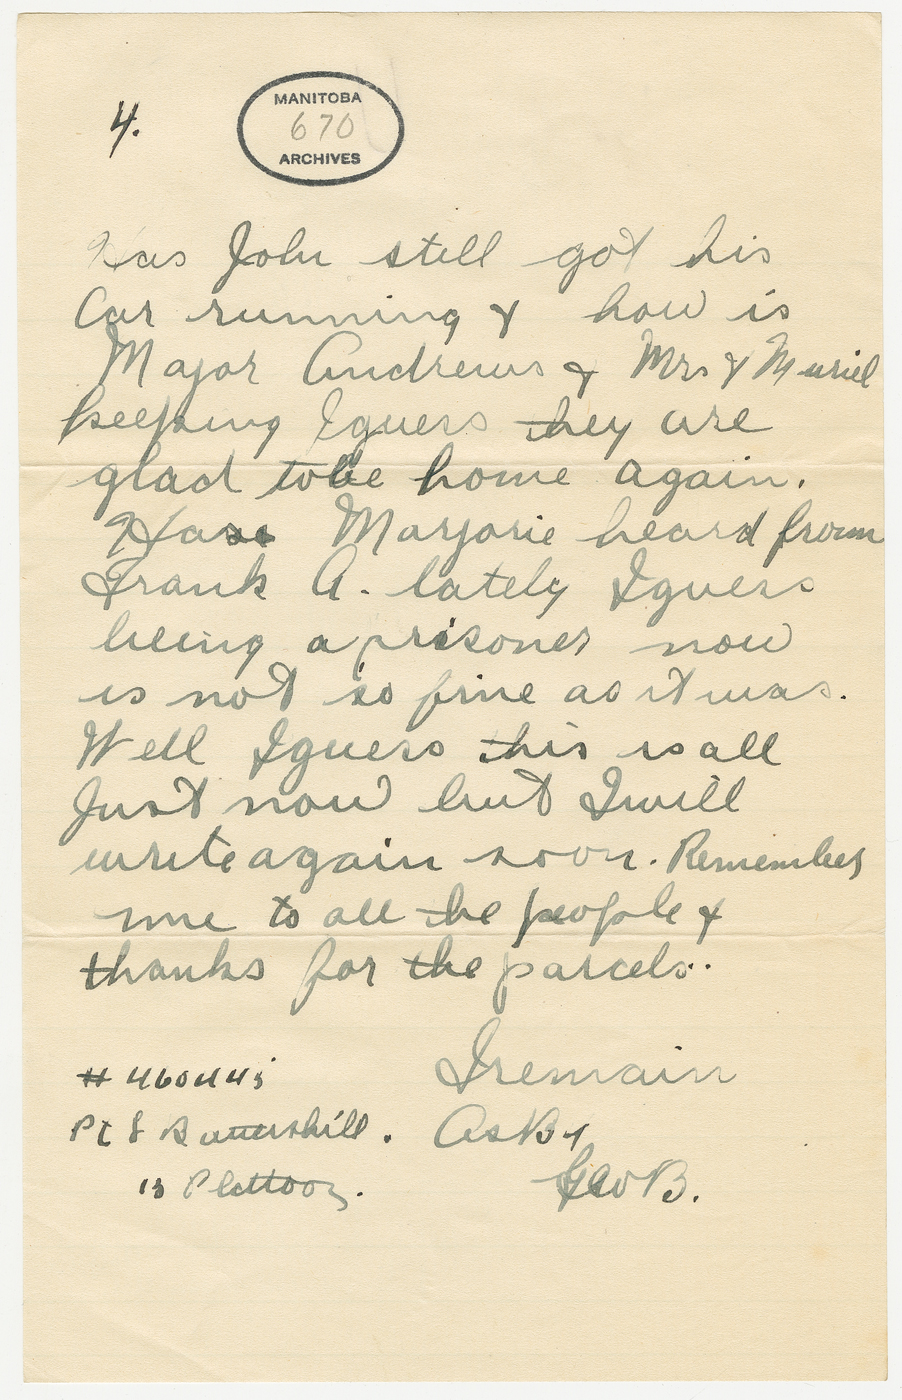 4.
MANITOBA
670
ARCHIVES
Has John still got his
Car running & how is
Major Andrews & Mrs & Muriel
keeping I guess they are
glad to be home again.
Has Marjorie heard from
Frank A. lately I guess
being a prisoner now
is not so fine as it was.
Well I guess this is all
Just now but I will
write again soon. Remember
me to all the people &
thanks for the parcels.
I remain
# 460445
As B4
Pt G Battershill.
Geo B.
13 Plattoon.